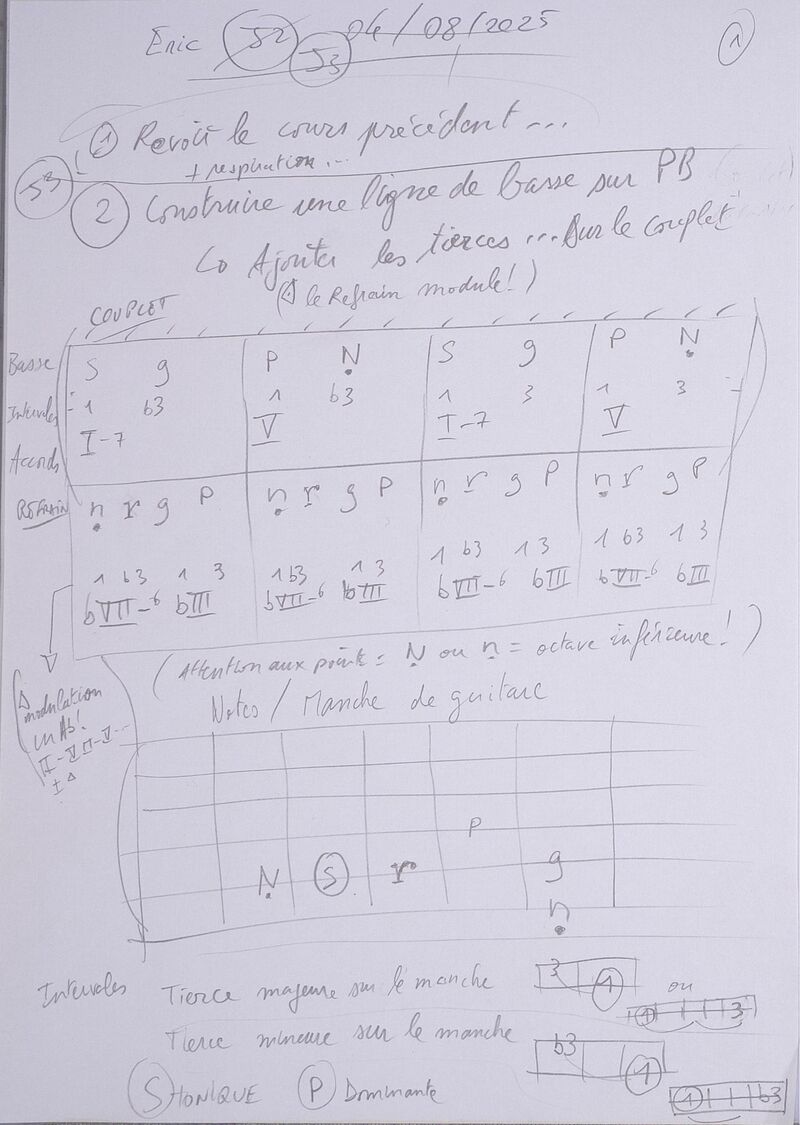 Eric 52 53 04/08/2025 1
1 Revoir le cours précédent...
+ respiration...
53 2 Construire une ligne de basse sur PB
↳ Ajouter les tierces... sur le couplet
(⚠ le Refrain module!)
COUPLET
Basse S g P Ṇ S g P Ṇ
Intervalles 1 b3 1 b3 1 3 1 3
Accords I-7 V I-7 V
REFRAIN ṇ r g P ṇ r g P ṇ r g P ṇ r g P
1 b3 1 3 1 b3 1 3 1 b3 1 3 1 b3 1 3
bVII-6 bIII bVII-6 bIII bVII-6 bIII bVII-6 bIII
(Attention aux points = Ṇ ou ṇ = octave inférieure!)
modulation
en Ab!
II-V II-V...
I Δ
Notes / Manche de guitare
P
Ṇ S r g
ṇ
Intervalles Tierce majeure sur le manche 3 1 ou 1 3
Tierce mineure sur le manche b3 1 1 b3
S tONIQUE P Dominante